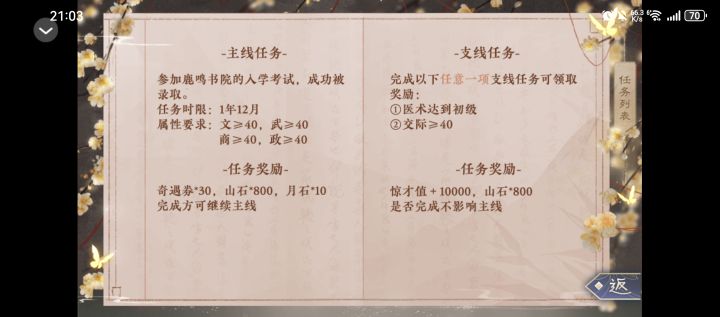 21:03
66.3 K/s
70
-主线任务-
参加鹿鸣书院的入学考试，成功被
录取。
任务时限：1年12月
属性要求：文≥40，武≥40
商≥40，政≥40
-任务奖励-
奇遇券*30，山石*800，月石*10
完成方可继续主线
-支线任务-
完成以下任意一项支线任务可领取
奖励：
①医术达到初级
②交际≥40
-任务奖励-
惊才值+10000，山石*800
是否完成不影响主线
任务列表
返